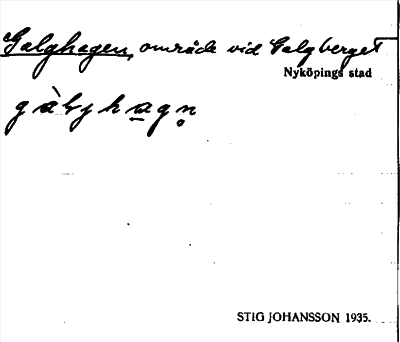 Galghagen, område vid Galgberget
Nyköpings stad
gàlyhagn̥
STIG JOHANSSON 1935.